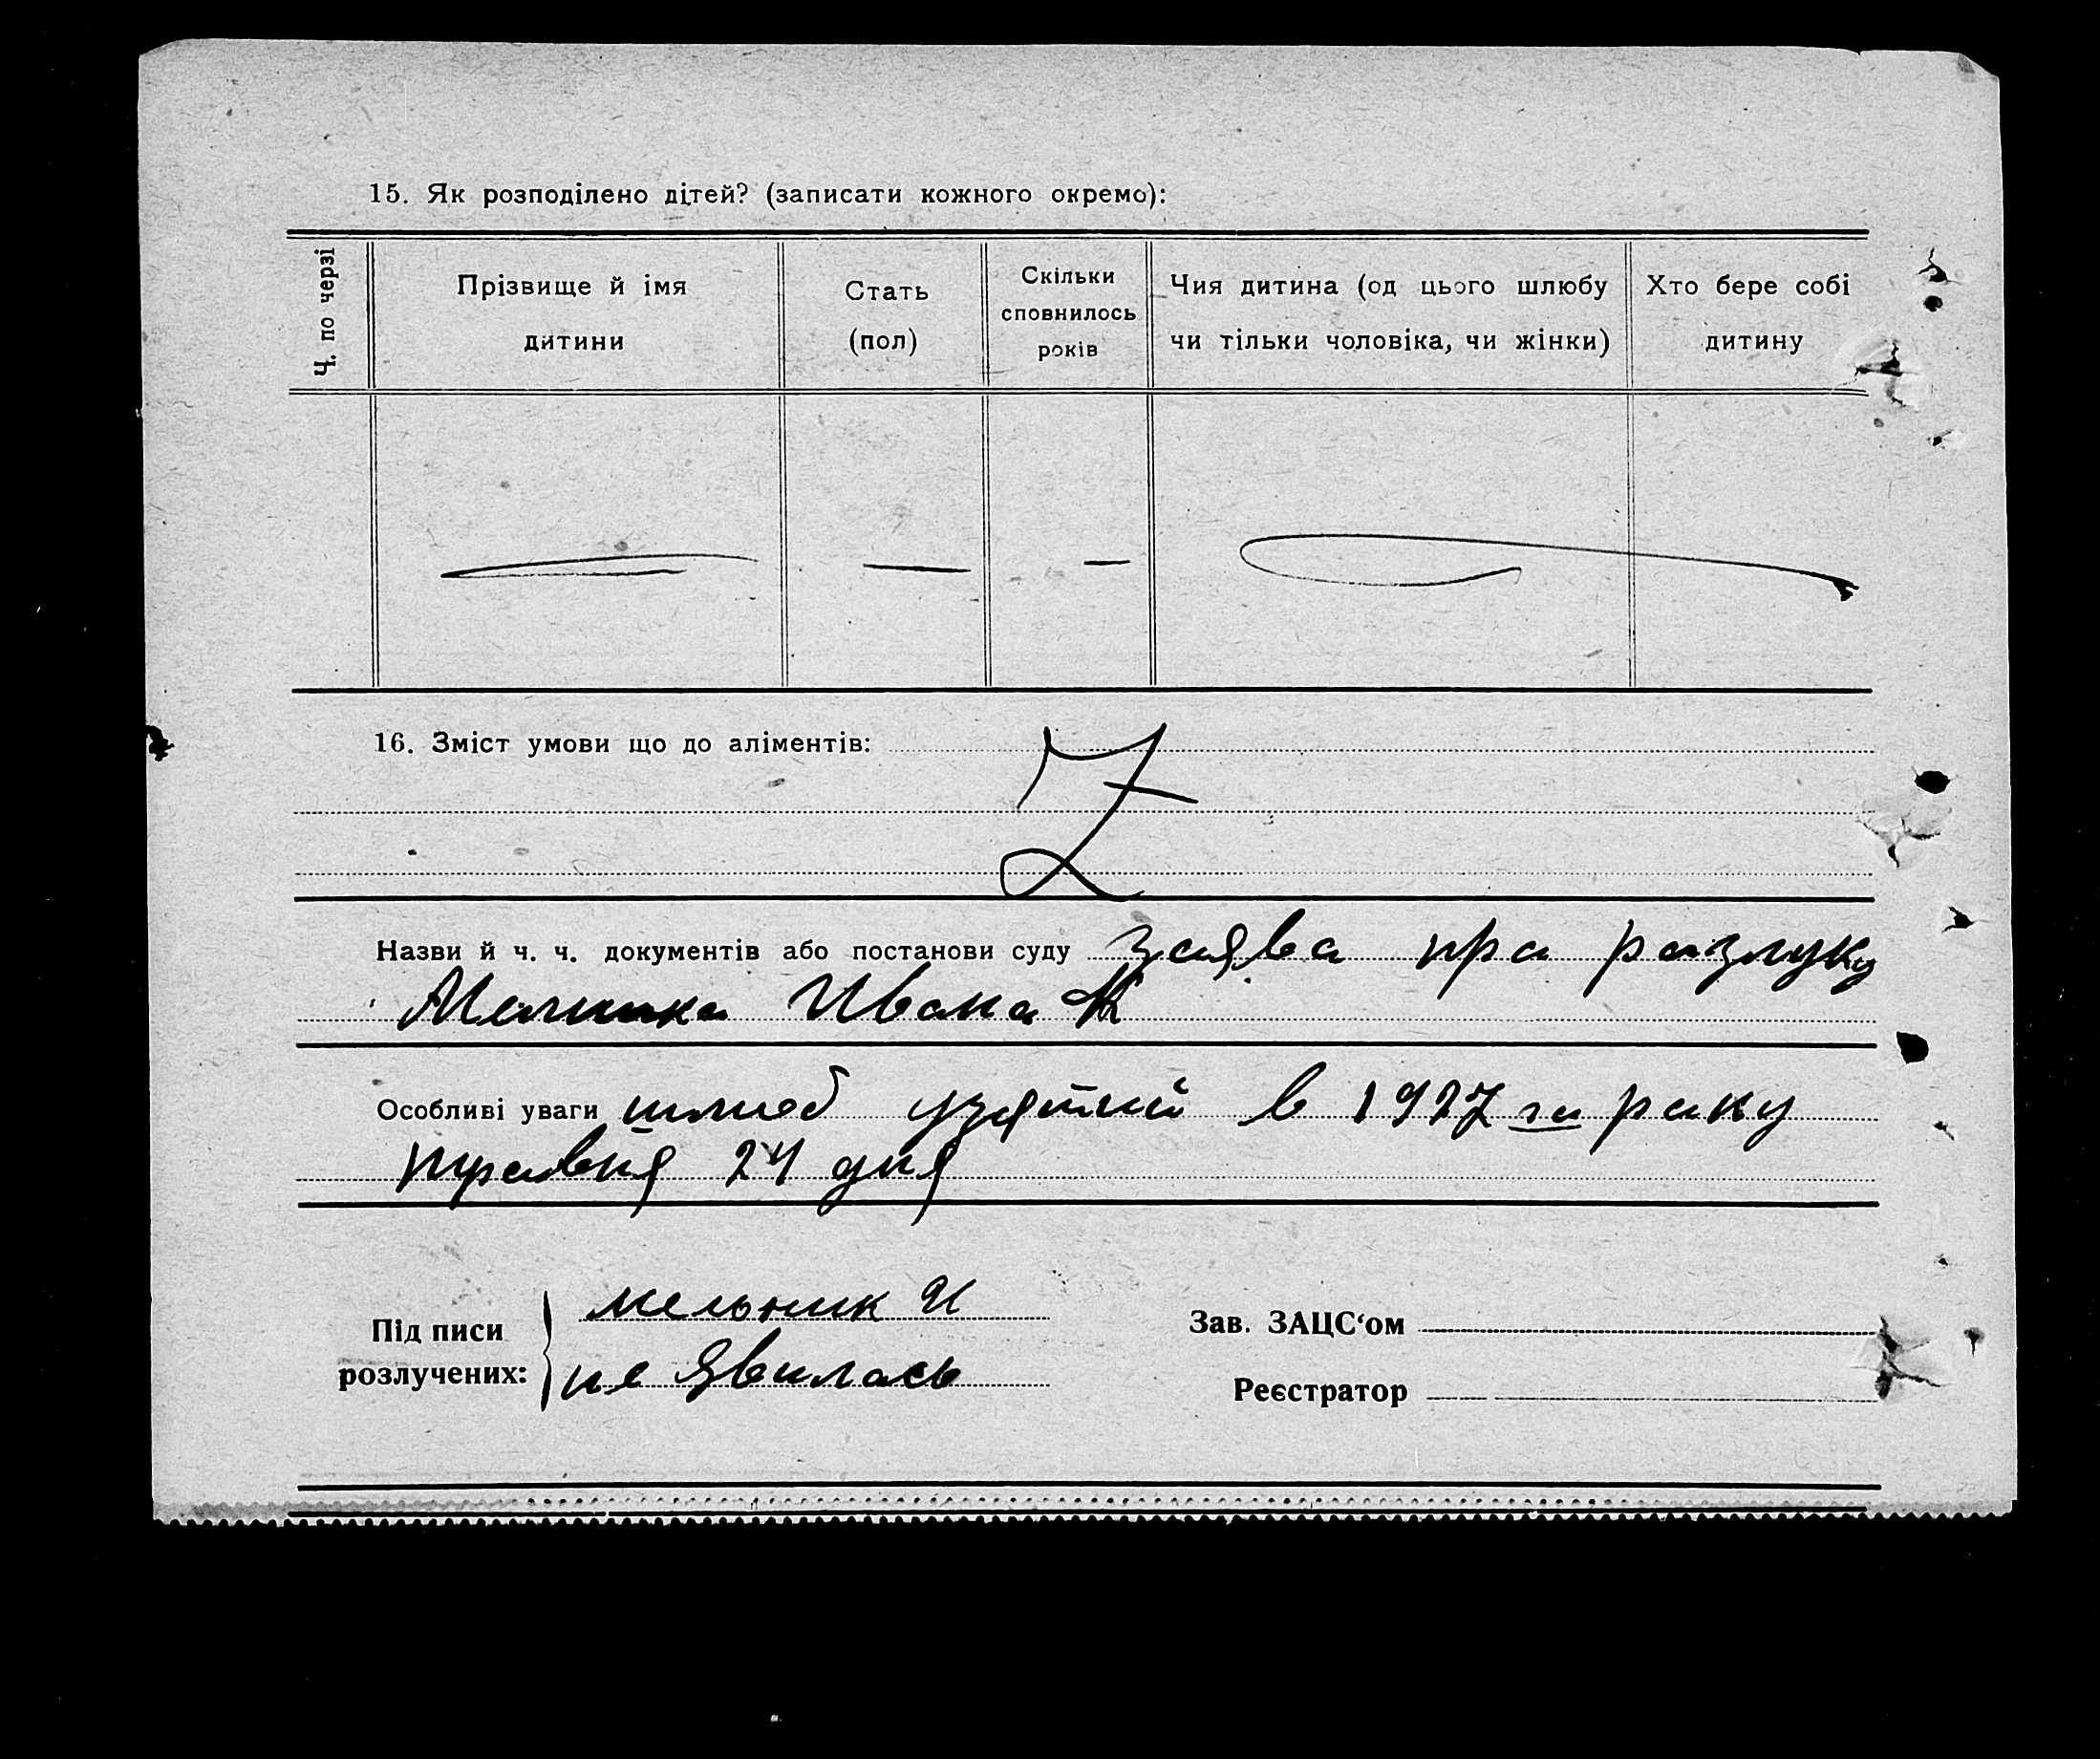 15. Як розподілено дітей? (записати кожного окремо):
Ч. по черзі
Прізвище й імя
дитини
Стать
(пол)
Скільки
сповнилось
років
Чия дитина (од цього шлюбу
чи тільки чоловіка, чи жінки)
Хто бере собі
дитину
— — —
16. Зміст умови що до аліментів:
Z
Назви й ч. ч. документів або постанови суду заява про розлуку
Мелника Ивана
Особливі уваги шлюб узятий в 1927 го року
травня 24 дня
Під писи
розлучених:
мельник И
не явилась
Зав. ЗАЦС‘ом
Реєстратор